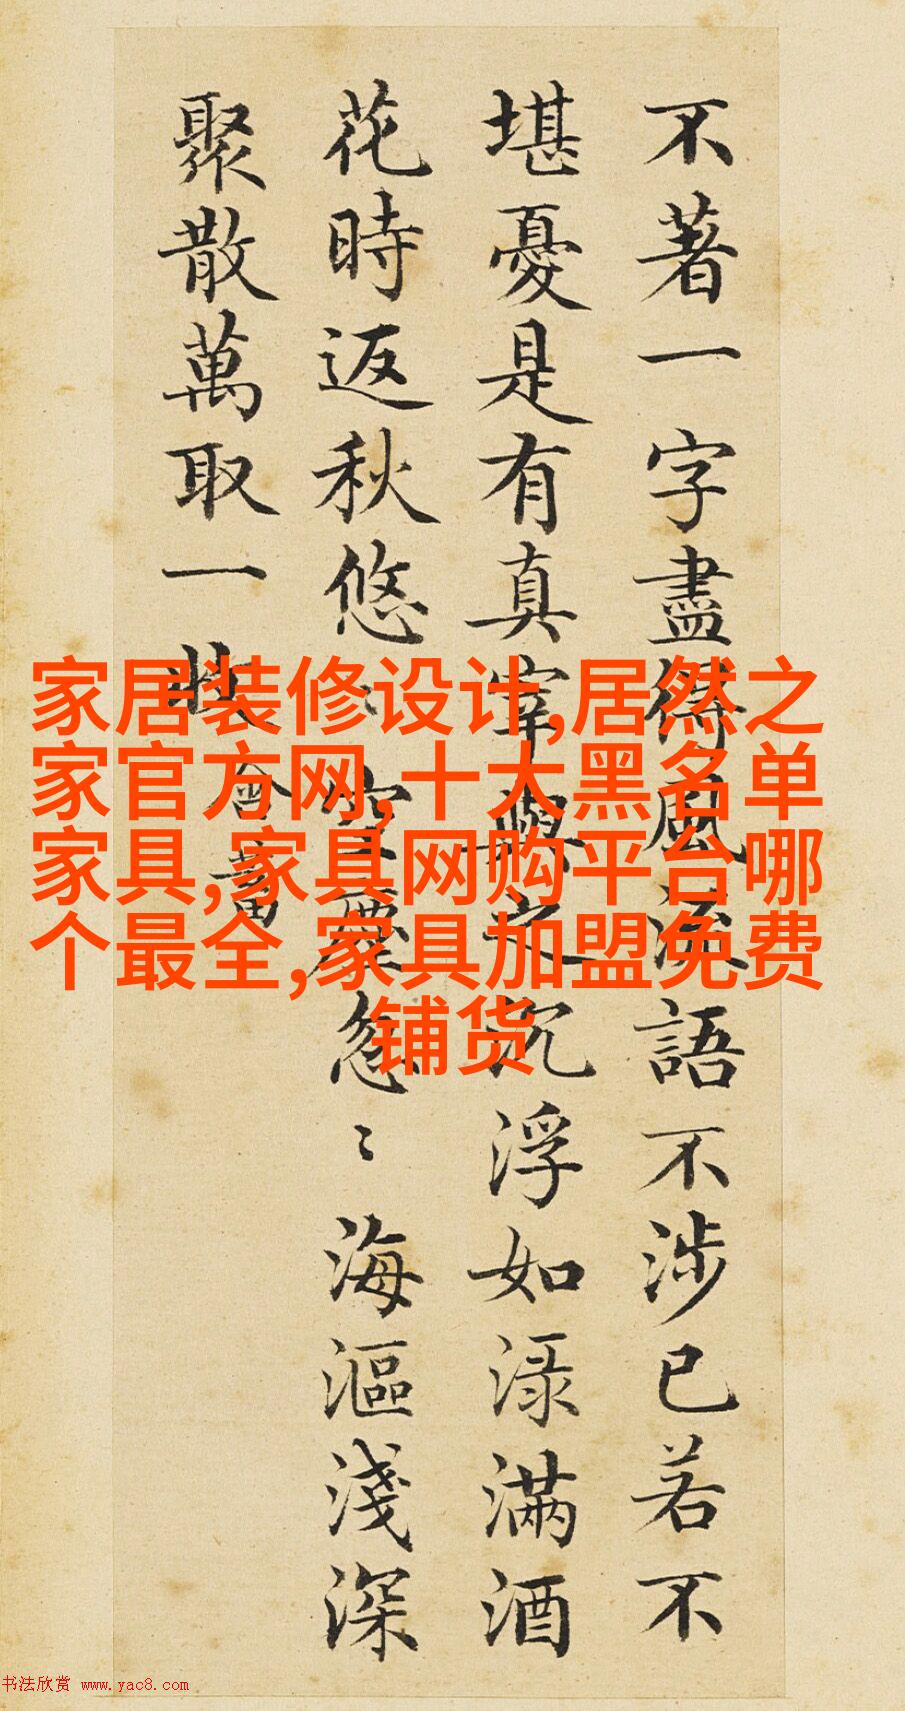 不著一字盡得風流語不涉已若不
堪憂是有真宰與之沉浮如淥滿酒
花時返秋悠〻空塵忽〻海漚淺深
聚散萬取一收
含蓄
家居装修设计,居然之
家官方网,十大黑名单
家具,家具网购平台哪
个最全,家具加盟免费
铺货
书法欣赏 www.yac8.com